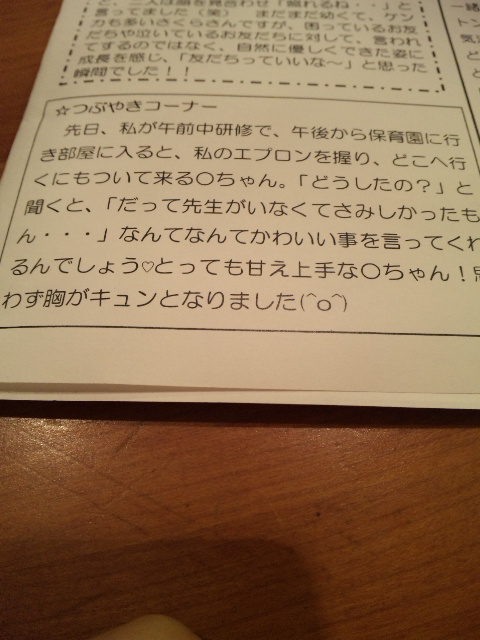 と、二人は顔を見合わせ「照れるね・・」と
言ってました（笑）　まだまだ幼くて、ケン
カも多いさくらさんですが、困っているお友
だちや泣いているお友だちに対して、言われ
てするのではなく、自然に優しくできた姿に
成長を感じ、「友だちっていいな～」と思った
瞬間でした！！
☆つぶやきコーナー
先日、私が午前中研修で、午後から保育園に行
き部屋に入ると、私のエプロンを握り、どこへ行
くにもついて来る〇ちゃん。「どうしたの？」と
聞くと、「だって先生がいなくてさみしかったも
ん・・・」なんてなんてかわいい事を言ってくれ
るんでしょう♡とっても甘え上手な〇ちゃん！思
わず胸がキュンとなりました(^o^)
一緒
トン
気